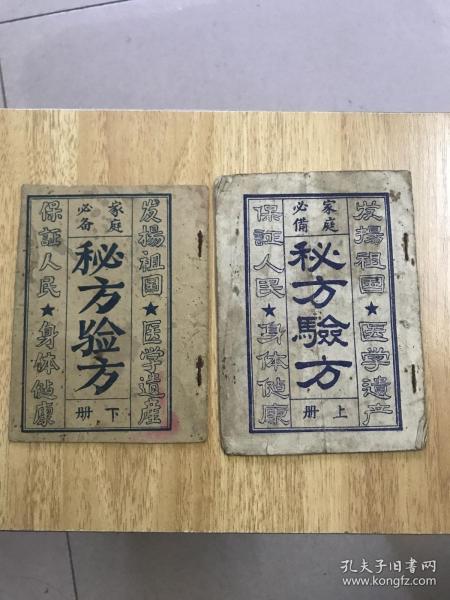 发揚祖国★医学遗產
家庭
必备
秘方验方
下册
保証人民★身体健康
发揚祖国★医学遗产
家庭
必備
秘方驗方
上册
保証人民★身体健康
孔夫子旧书网
www.kongfz.com